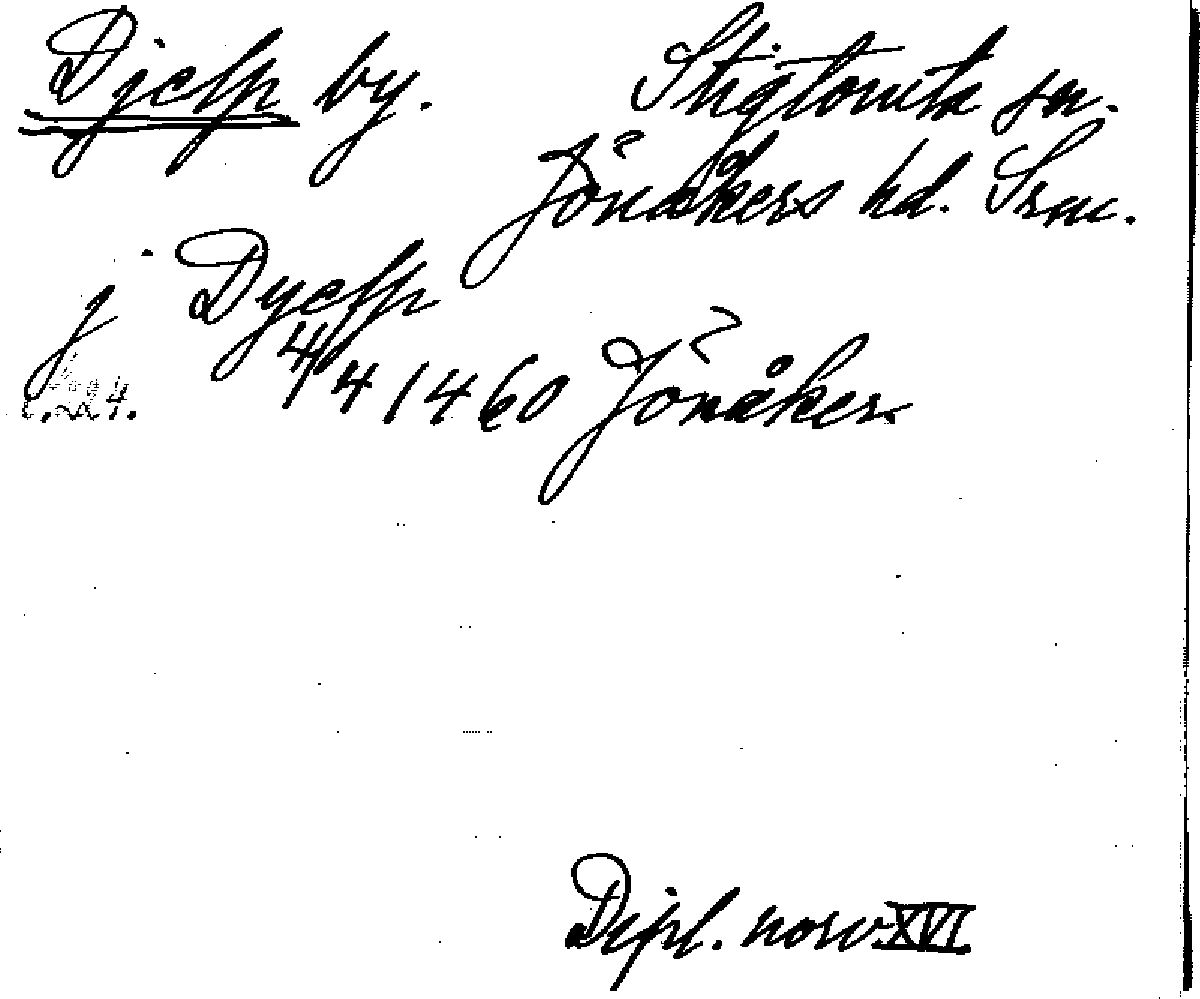 Djelp by. Stigtomta sn.
Jönåkers hd. Srm.
j Dyelp
4/4 1460 Jönåker
224.
Dipl. norv. XVI